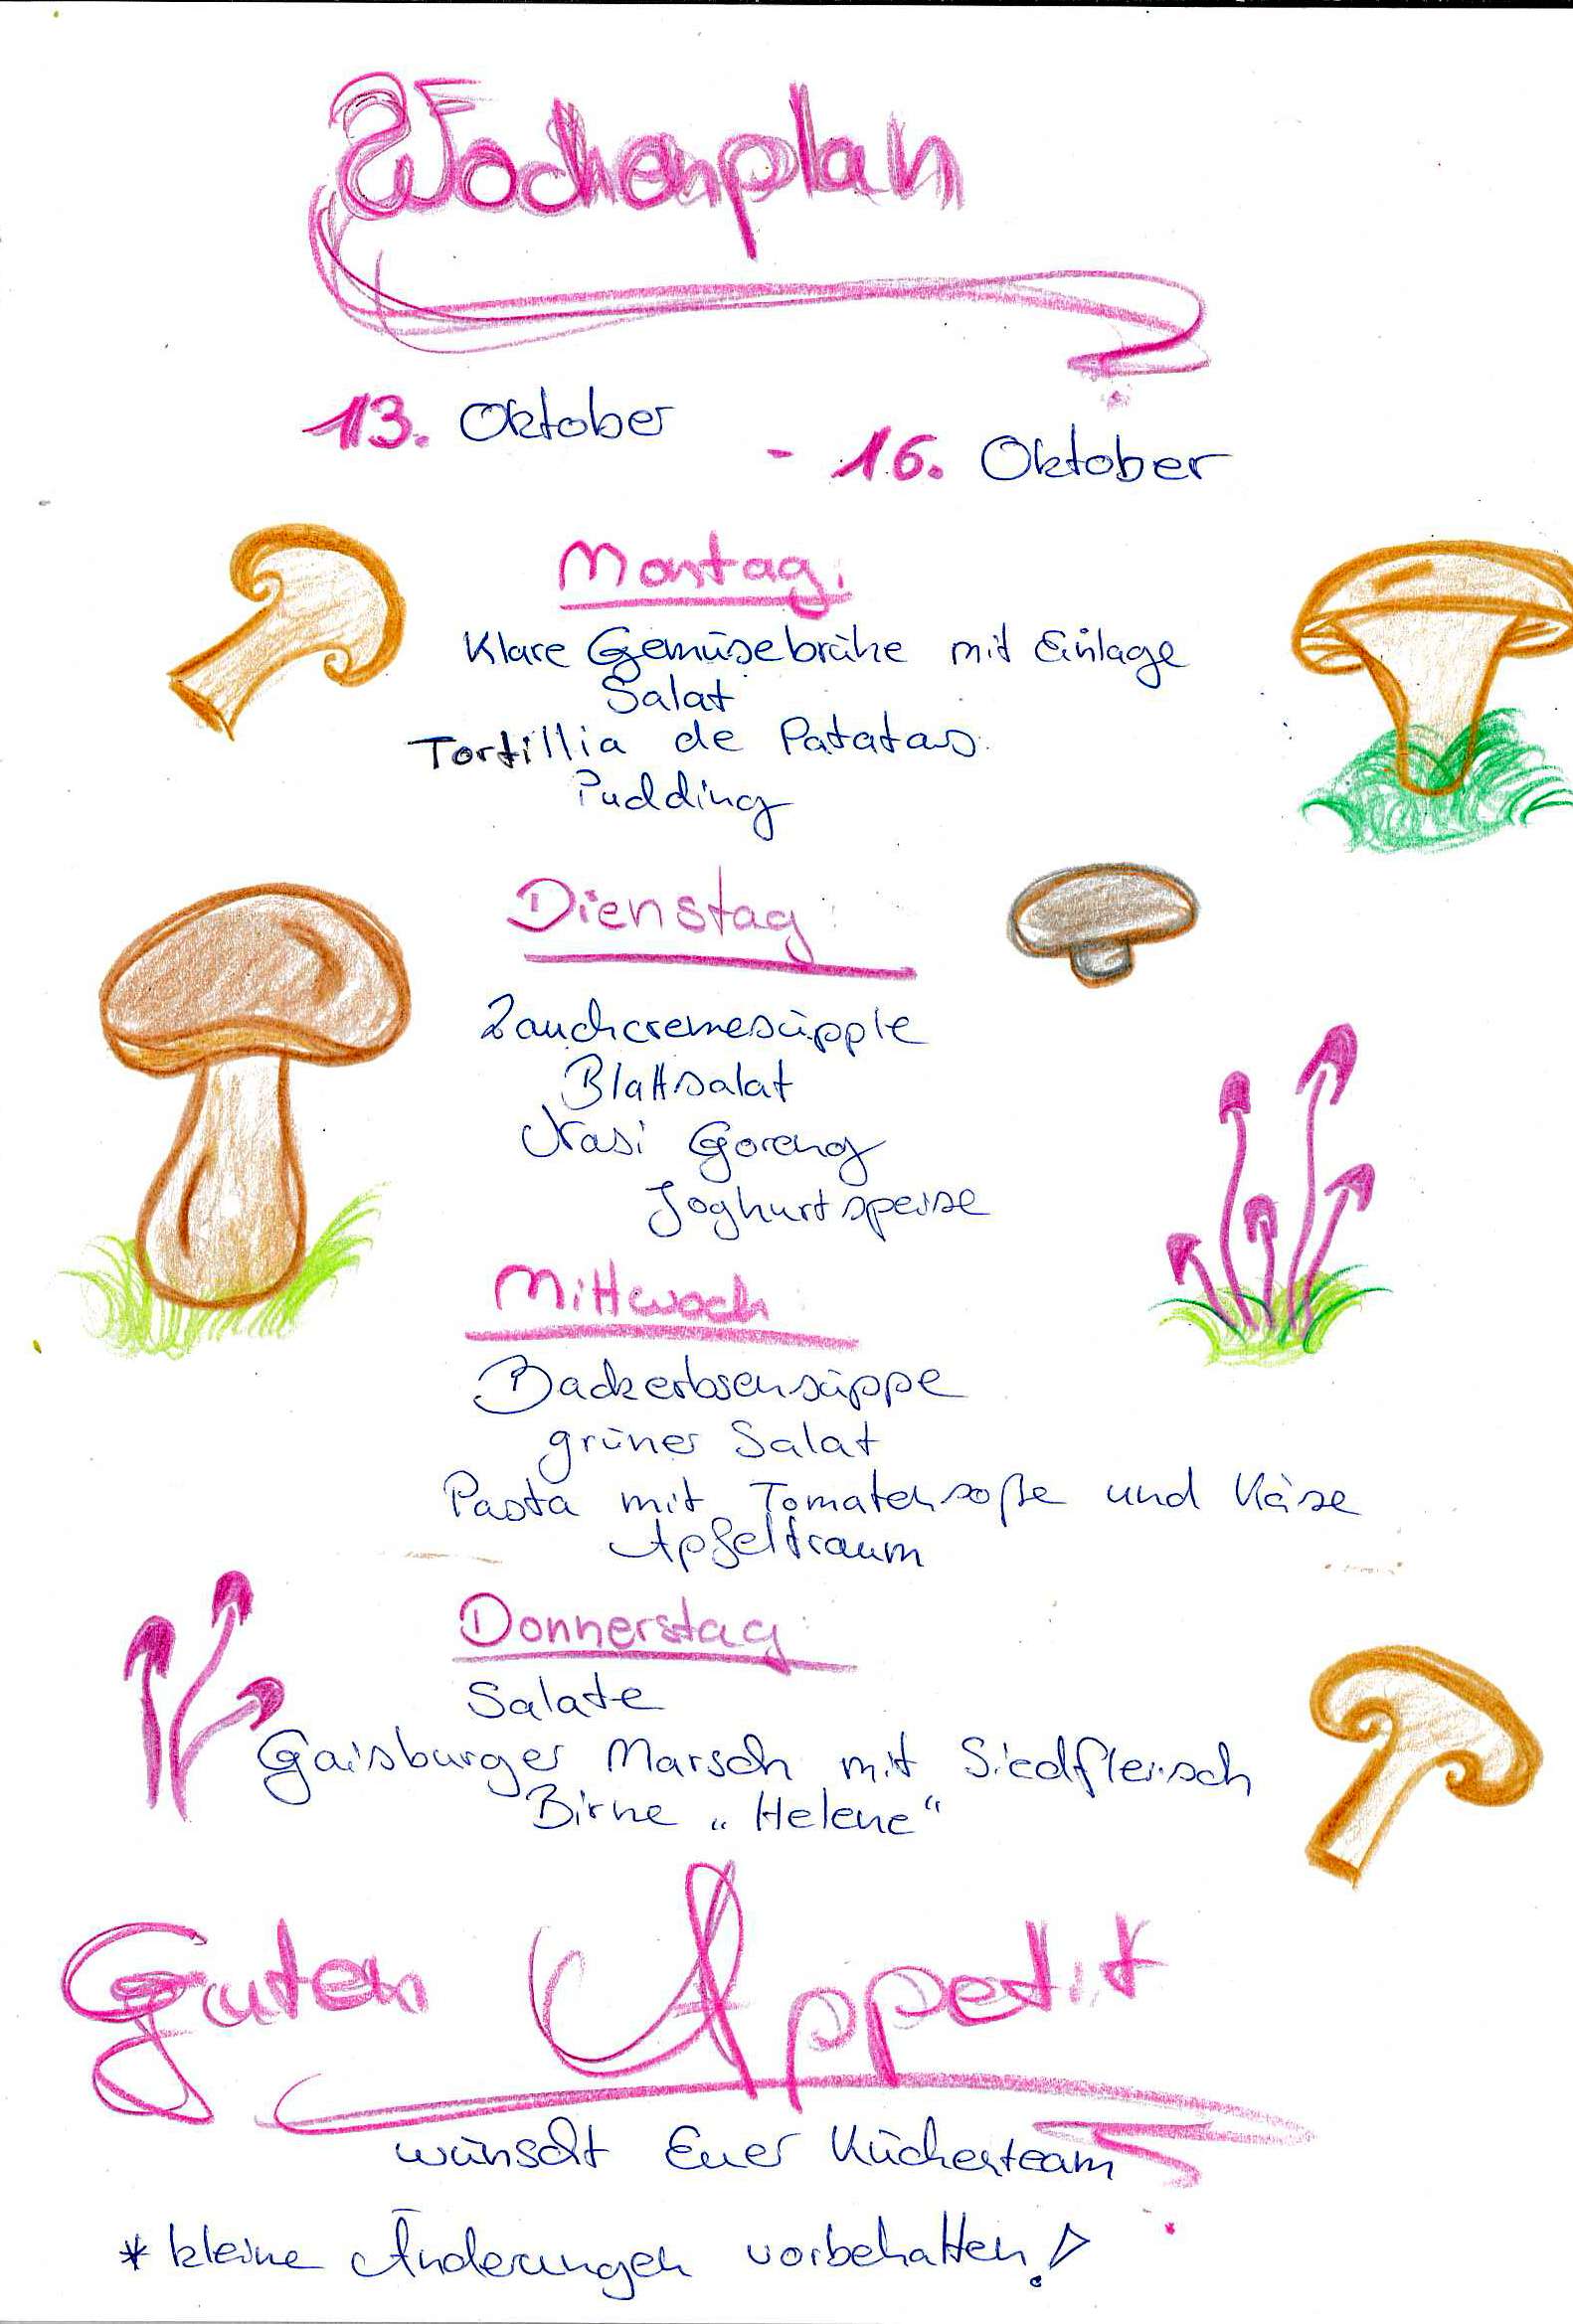 Wochenplan
13. Oktober - 16. Oktober
Montag:
Klare Gemüsebrühe mit Einlage
Salat
Tortillia de Patatas
Pudding
Dienstag:
Lauchcremesüpple
Blattsalat
Nasi Goreng
Joghurtspeise
Mittwoch
Backerbsensuppe
grüner Salat
Pasta mit Tomatensoße und Käse
Apfeltraum
Donnerstag:
Salate
Gaisburger Marsch mit Siedfleisch
Birne „Helene“
Guten Appetit
wünscht Euer Küchenteam
* kleine Änderungen vorbehalten!